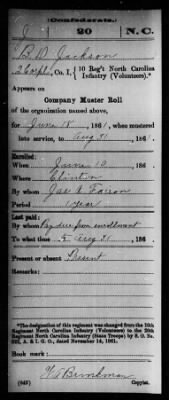 Confederate.
J 20 N.C.
B D Jackson
2 Corpl, Co. I, 10 Reg't North Carolina
Infantry (Volunteers).*
Appears on
Company Muster Roll
of the organization named above,
for June 18, 1861, when mustered
into service, to Aug 31, 1861.
Enrolled:
When June 10, 1861.
Where Clinton
By whom
Period 1 year
Last paid:
By whom Pay due from enrollment
To what time Aug 31, 1861.
Present or absent Present
Remarks:
*The designation of this regiment was changed from the 10th
Regiment North Carolina Infantry (Volunteers) to the 20th
Regiment North Carolina Infantry (State Troops) by S. O. No.
222, A. & I. G. O., dated November 14, 1861.
Book mark:
(642) Copyist.